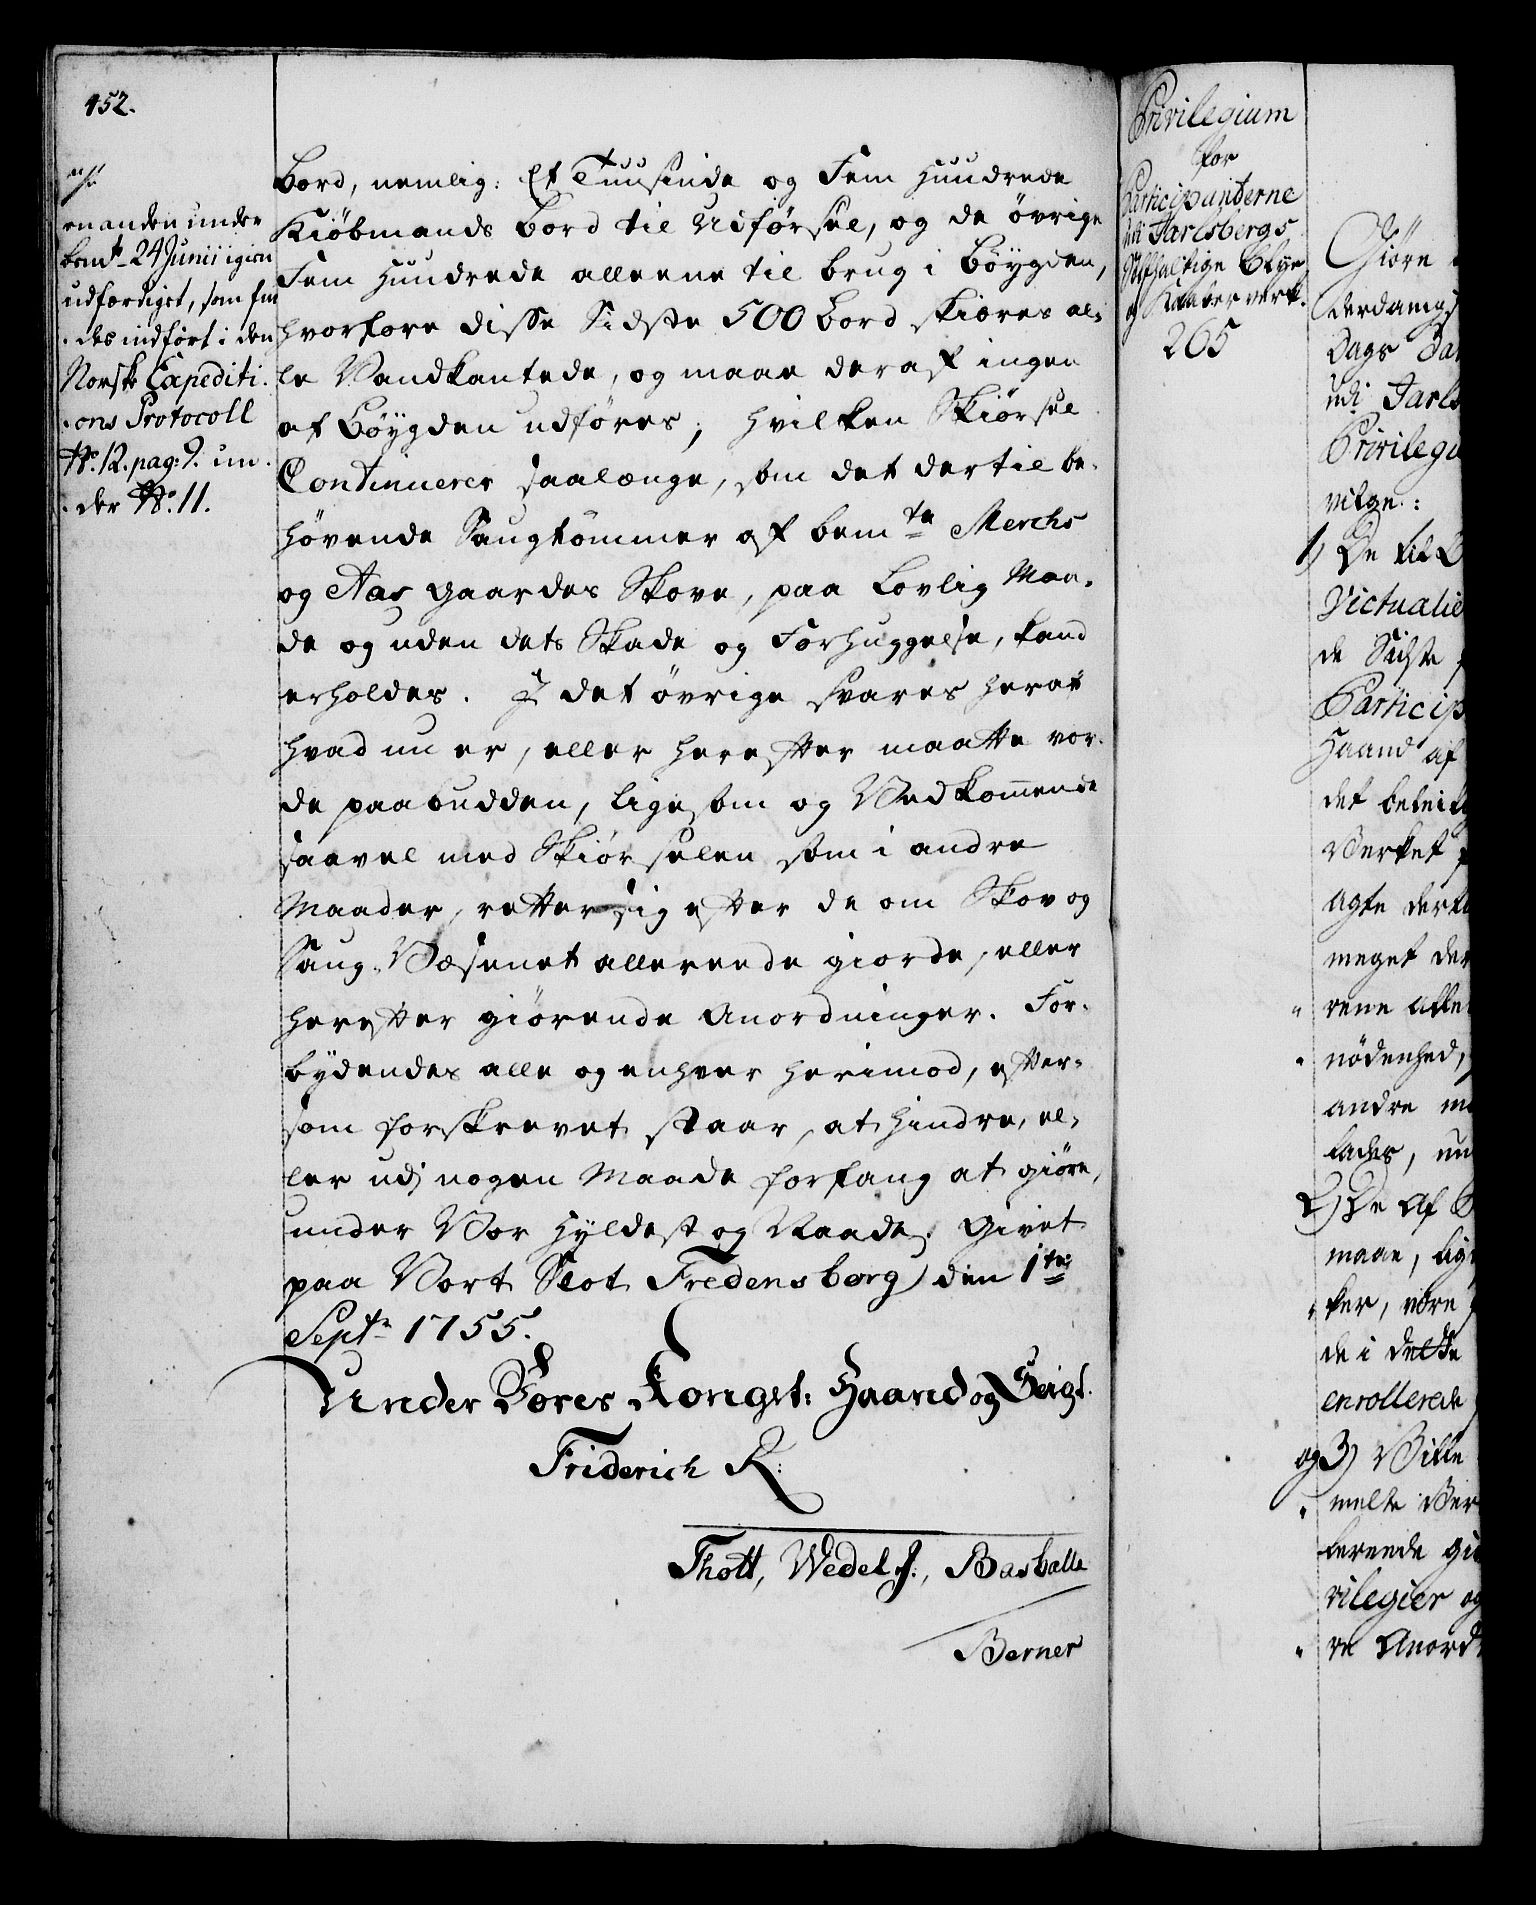 452.
en anden under
bemte 24 Junii igien
udfærdiget, som fin
des indført i den
Norske Expediti
ons Protocoll
No. 12. pag: 9. un
der No. 11.
Bord, nemlig: Et Tuusinde og Fem Hundrede
Kiöbmands Bord til Udførsel, og de övrige
Fem Hundrede alleene til brug i Böygden,
hvorfore disse Sidste 500 Bord skiæres al-
le Vandkantede, og maae deraf ingen
af Böygden udføres; hvilken Skiørsel
Continuerer saalænge, som det dertil be-
høvende Saugtømmer af bemte Merchs
og Aas Gaardes Skove, paa Lovlig Maa-
de og uden dets Skade og Forhuggelse, kand
erholdes. I det øvrige svares heraf
hvad nu er, eller herefter maatte vor-
de paabudden, ligesom og Vedkommende
saavel med Skiørselen som i andre
Maader, retter sig efter de om Skov og
Saug-Væsenet allereede giorde, eller
herefter giørende Anordninger. For-
bydendes alle og enhver herimod, efter-
som forskrevet staar, at hindre, el-
ler udj nogen Maade forfang at giøre,
under Vor Hyldest og Naade. Givet
paa Vort Slot Fredensborg den 1te
Septr 1755.
Under Vores Kongel: Haand og Seigl.
Friderich R:
Thott, Wedel J:, Basballe
Berner
Privilegium
for
Participanterne
udi Jarlsbergs
Sølfholtige Blye
og Kaaberverk.
265
Giøre
Dags
udi Jarls
Privilegi
vilge:
1) De til
Victualie
de Sidste
Particip
Haand af
det
Verket
agte
meget der
rene
nödenhed,
andre
lades,
2) De af
maae, lig
ker, være
de i dette
enrollerede
og 3) Ville
melte Ver
rilegier og
re Anord